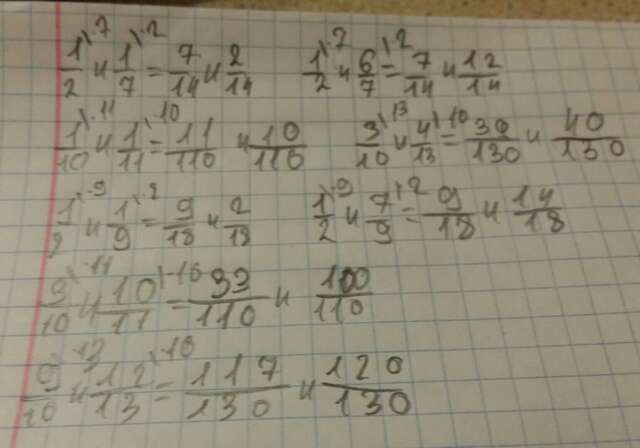 1/2 \·7 и 1/7 \·2 = 7/14 и 2/14 1/2 \·7 и 6/7 \·2 = 7/14 и 12/14
1/10 \·11 и 1/11 \·10 = 11/110 и 10/110 3/10 \·13 и 4/13 \·10 = 39/130 и 40/130
1/2 \·9 и 1/9 \·2 = 9/18 и 2/18 1/2 \·9 и 7/9 \·2 = 9/18 и 14/18
3/10 \·11 и 10/11 \·10 = 33/110 и 100/110
9/10 \·13 и 12/13 \·10 = 117/130 и 120/130